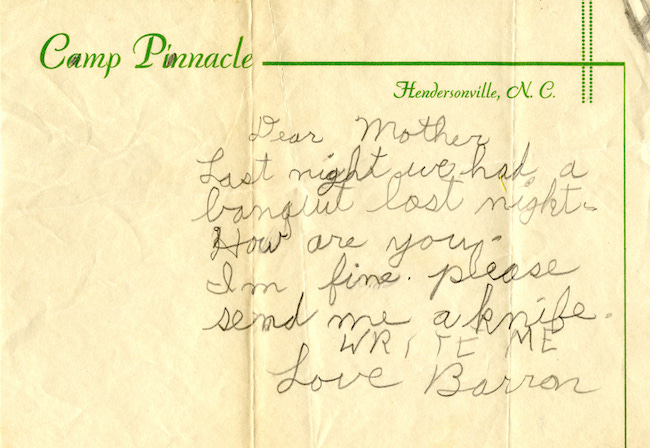 Camp Pinnacle
Hendersonville, N. C.
Dear Mother
Last night we had a
banquit last night.
How are you.
I'm fine. please
send me a knife.
WRITE ME
Love Barron